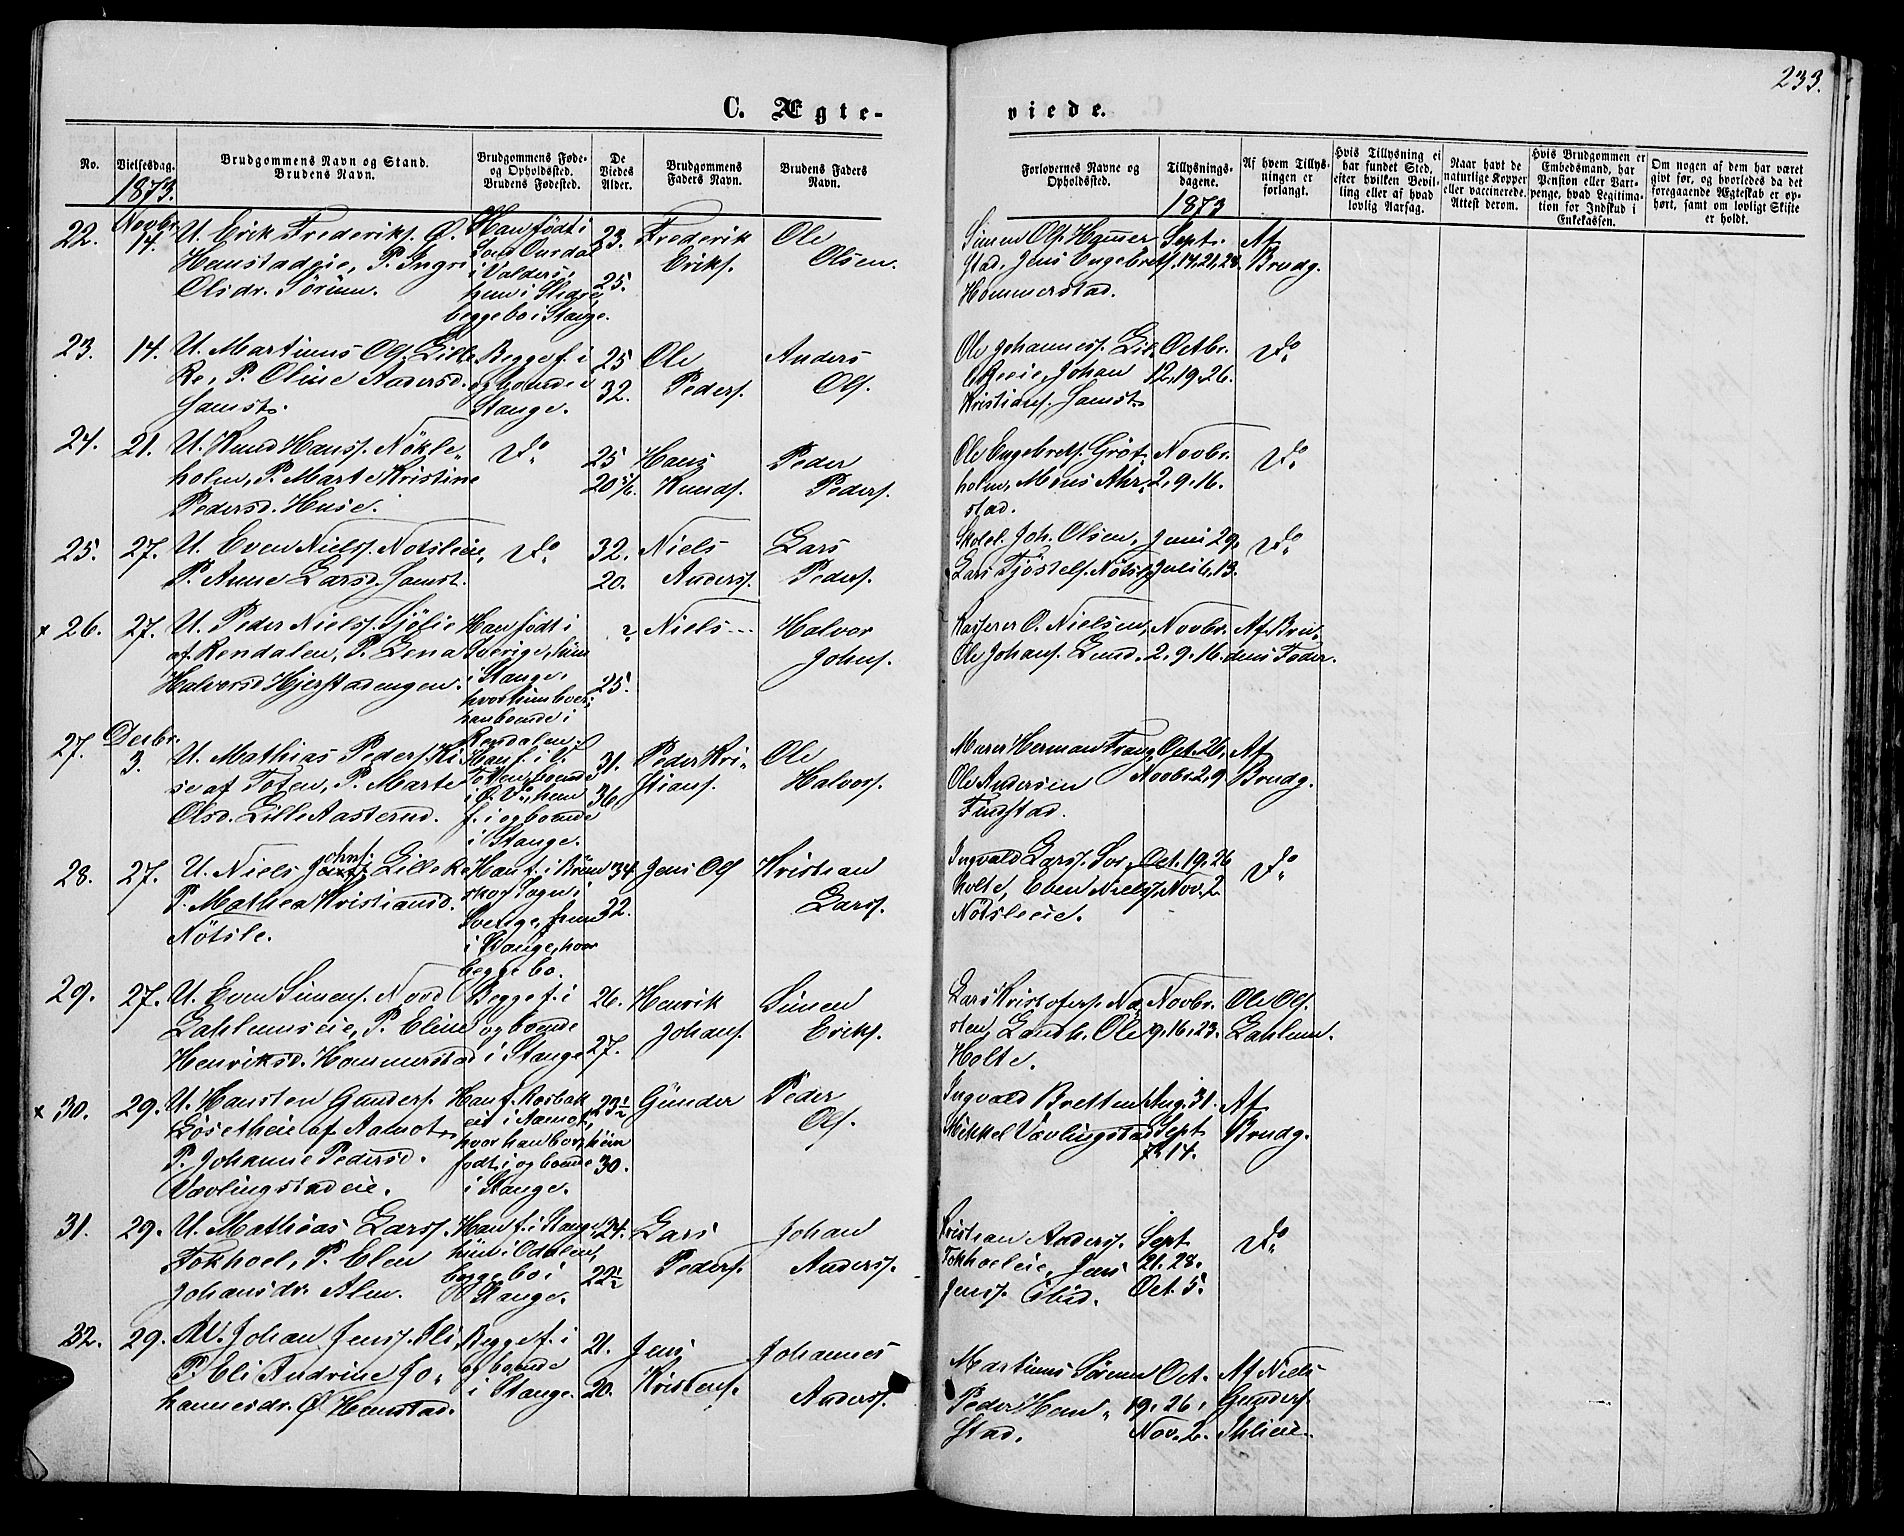 233.
C. Ægteviede.
No.
Vielsesdag.
1873.
Brudgommens Navn og Stand.
Brudens Navn.
Brudgommens Føde-
og Opholdssted.
Brudens Fødested.
De
Viedes
Alder.
Brudgommens
Faders Navn.
Brudens Faders
Navn.
Forlovernes Navne og
Opholdssted.
Tillysnings-
dagene.
1873
Af hvem Tillys-
ningen er
forlangt.
Hvis Tillysning ei
har fundet Sted,
efter hvilken Bevil-
ling eller af hvad
lovlig Aarsag.
Naar havt de
naturlige Kopper
eller vaccinerede.
Attest derom.
Hvis Brudgommen er
Embedsmand, har
Pension eller Varte-
penge, hvad Legitima-
tion for Indskud i
Enkekassen.
Om nogen af dem har været
gift før, og hvorledes da det
foregaaende Ægteskab er op-
hørt, samt om lovligt Skifte
er holdt.
22.
Novbr.
14.
U. Erik Frederiks. Ø.
Hemstadeie, P. Ingri
Olsdr. Sörum.
Han født i
Sønd Ourdal
i Valders,
hun i Slidre,
begge bo i Stange.
23.
25.
Frederik
Eriks.
Ole
Olsen.
Simen Ols. Hommer
stad, Jens Engebrets.
Hommerstad.
Sept.
14, 21, 28.
Af
Brudg.
23.
14.
U. Martinus Ols. Lille
Re, P. Oline Andersd.
Samst.
Begge f. i
og boende i
Stange.
25
32.
Ole
Peders.
Anders
Ols.
Ole Johanness. Lil
leReeie, Johan
Kristians. Samst.
Octbr.
12, 19, 26.
Do
24.
21.
U. Knud Hanss. Nökle-
holen, P. Marte Kristine
Pedersd. Huse.
Do
25
20
Hans
Knuds.
Peder
Peders.
Ole Engebrets. Gröt-
holen, Möns Ahr-
stad.
Novbr.
2, 9, 16.
Do
25.
27.
U. Even Niels. Notsleeie,
P. Anne Larsd. Samst.
Do
32.
20.
Niels
Anders.
Lars
Peders.
Skolel. Joh. Olsen,
Lars Tjöstels. Nötsle
Juni 29,
Juli 6, 13.
Do
x 26.
27.
U. Peder Niels. Sjölie
af Rendalen, P. Lena
Halvorsd Hjerstadengen.
Han født i
Sverige, hun
i Stange,
hvor hun boer,
han boende i
Rendalen.
?
25.
Niels ---
Halvor
Johns.
Kasserer O. Nielsen,
Ole Johans. Lund.
Novbr.
2, 9, 16.
Af Bru-
dens Fader.
27.
Decbr.
3.
U. Mathias Peders. Ki
se af Toten, P. Marte
Olsd. Lille Aasterud.
Han f. i V.
Toten, boende
i Ø. Do, hun
f. i og boende
i Stange.
31.
36.
Peder Kri-
stians.
Ole
Halvors.
Murer Herman Franz,
Ole Andersen
Findstad.
Oct. 26,
Novbr 2, 9
Af
Brudg.
28.
27.
U. Niels Johns. Lille Re
P. Mathea Kristiansd.
Nötsle.
Han f. i Brun
skog Sogn i
Sverige, hun
i Stange, hvor
begge bo.
34
32.
Jens Ols
Kristian
Lars.
Ingvald Larss. Sor-
holte, Even Niels
Nötsleeie.
Oct. 19, 26
Nov. 2
Do
29.
27.
U. Even Simens. Nord
Lahlumseie, P. Eline
Henriksd. Hommerstad
Begge f. i
og boende
i Stange
26.
27.
Henrik
Johans.
Simen
Eriks.
Lars Kristofers. Næ
sten, Landh. Ole
Holte.
Novbr.
9, 16, 23.
Ole Ols.
Lahlum.
x 30.
29.
U. Hansten Gunders.
Löseteie af Aamot,
P. Johanne Pedersd.
Vævlingstadeie.
Han f. Rosbak
eie i Aamot,
hvor han bor, hun
født i og boende
i Stange.
23½
30.
Gunder
Peder
Ols.
Ingvald Bretten,
Mikkel Vævlingstad
Aug. 31.
Sept.
7, 14.
Af
Brudg.
31.
29.
U. Mathias Larss.
Fokhoel, P. Elen
Johansdr. Alm.
Han f. i Stange,
hun i Odalen,
begge bo i
Stange.
24.
22½
Lars
Peders.
Johan
Anders.
Kristian Anders.
Fokhoeleie, Jens
Jenss.
Sept.
21, 28.
Oct. 5.
Do
32.
29.
U. Johan Jenss. Ili,
P. Eli Andrine Jo-
hannesdr. Ø Hemstad.
Begge f. i
og boende
i Stange.
21.
20.
Jens
Kristens.
Johannes
Anders.
Martinus Sörum
Peder Hem-
stad.
Oct.
19, 26,
Nov. 2.
Af Niels
Gunders.
Ihlieie.